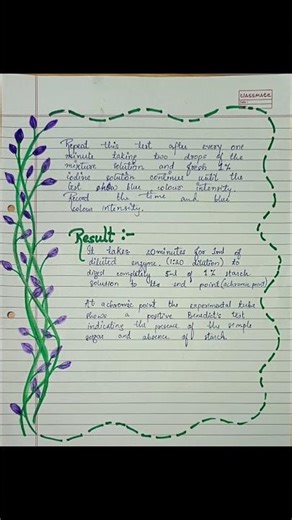 classmate
Repeat this test after every one
minute taking two drops of the
mixture solution and fresh 1%
iodine solution continue until the
test show blue colour intensity.
Record the time and blue
colour intensity.
Result :-
It takes 20minutes for 1ml of
diluted enzyme (1:20 dilution) to
digest completely 5ml of 1% starch
solution to the end point (achromic point)
At achromic point the experimental tube
shows a positive Benedict's test
indicating the presence of the simple
sugar and absence of starch